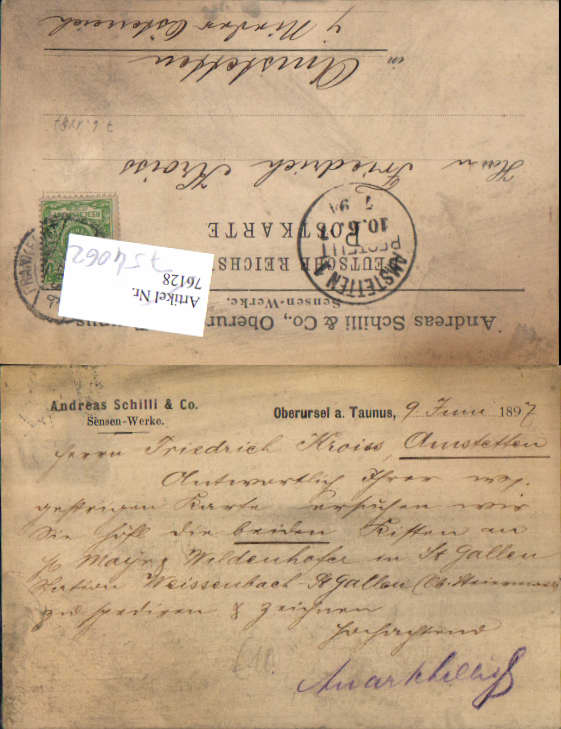 Andreas Schilli & Co., Oberur
Sensen-Werke.
DEUTSCHE REICHS
POSTKARTE
AMSTETTEN
BESTELLT
10.6.
7 9
Artikel Nr.
76128
754062
Herrn Friedrich Kroiss
in Amstetten
Nieder Österreich
Andreas Schilli & Co.
Sensen-Werke.
Oberursel a. Taunus, 9 Juni 1897
Herrn Friedrich Kroiss, Amstetten
Antwortlich Ihrer
gestrigen Karte ersuchen wir
Sie höfl die beiden Kisten an
Mayr & Wildenhofer in St Gallen
Station Weissenbach-St Gallen
zu spediren & zeichnen
Hochachtend